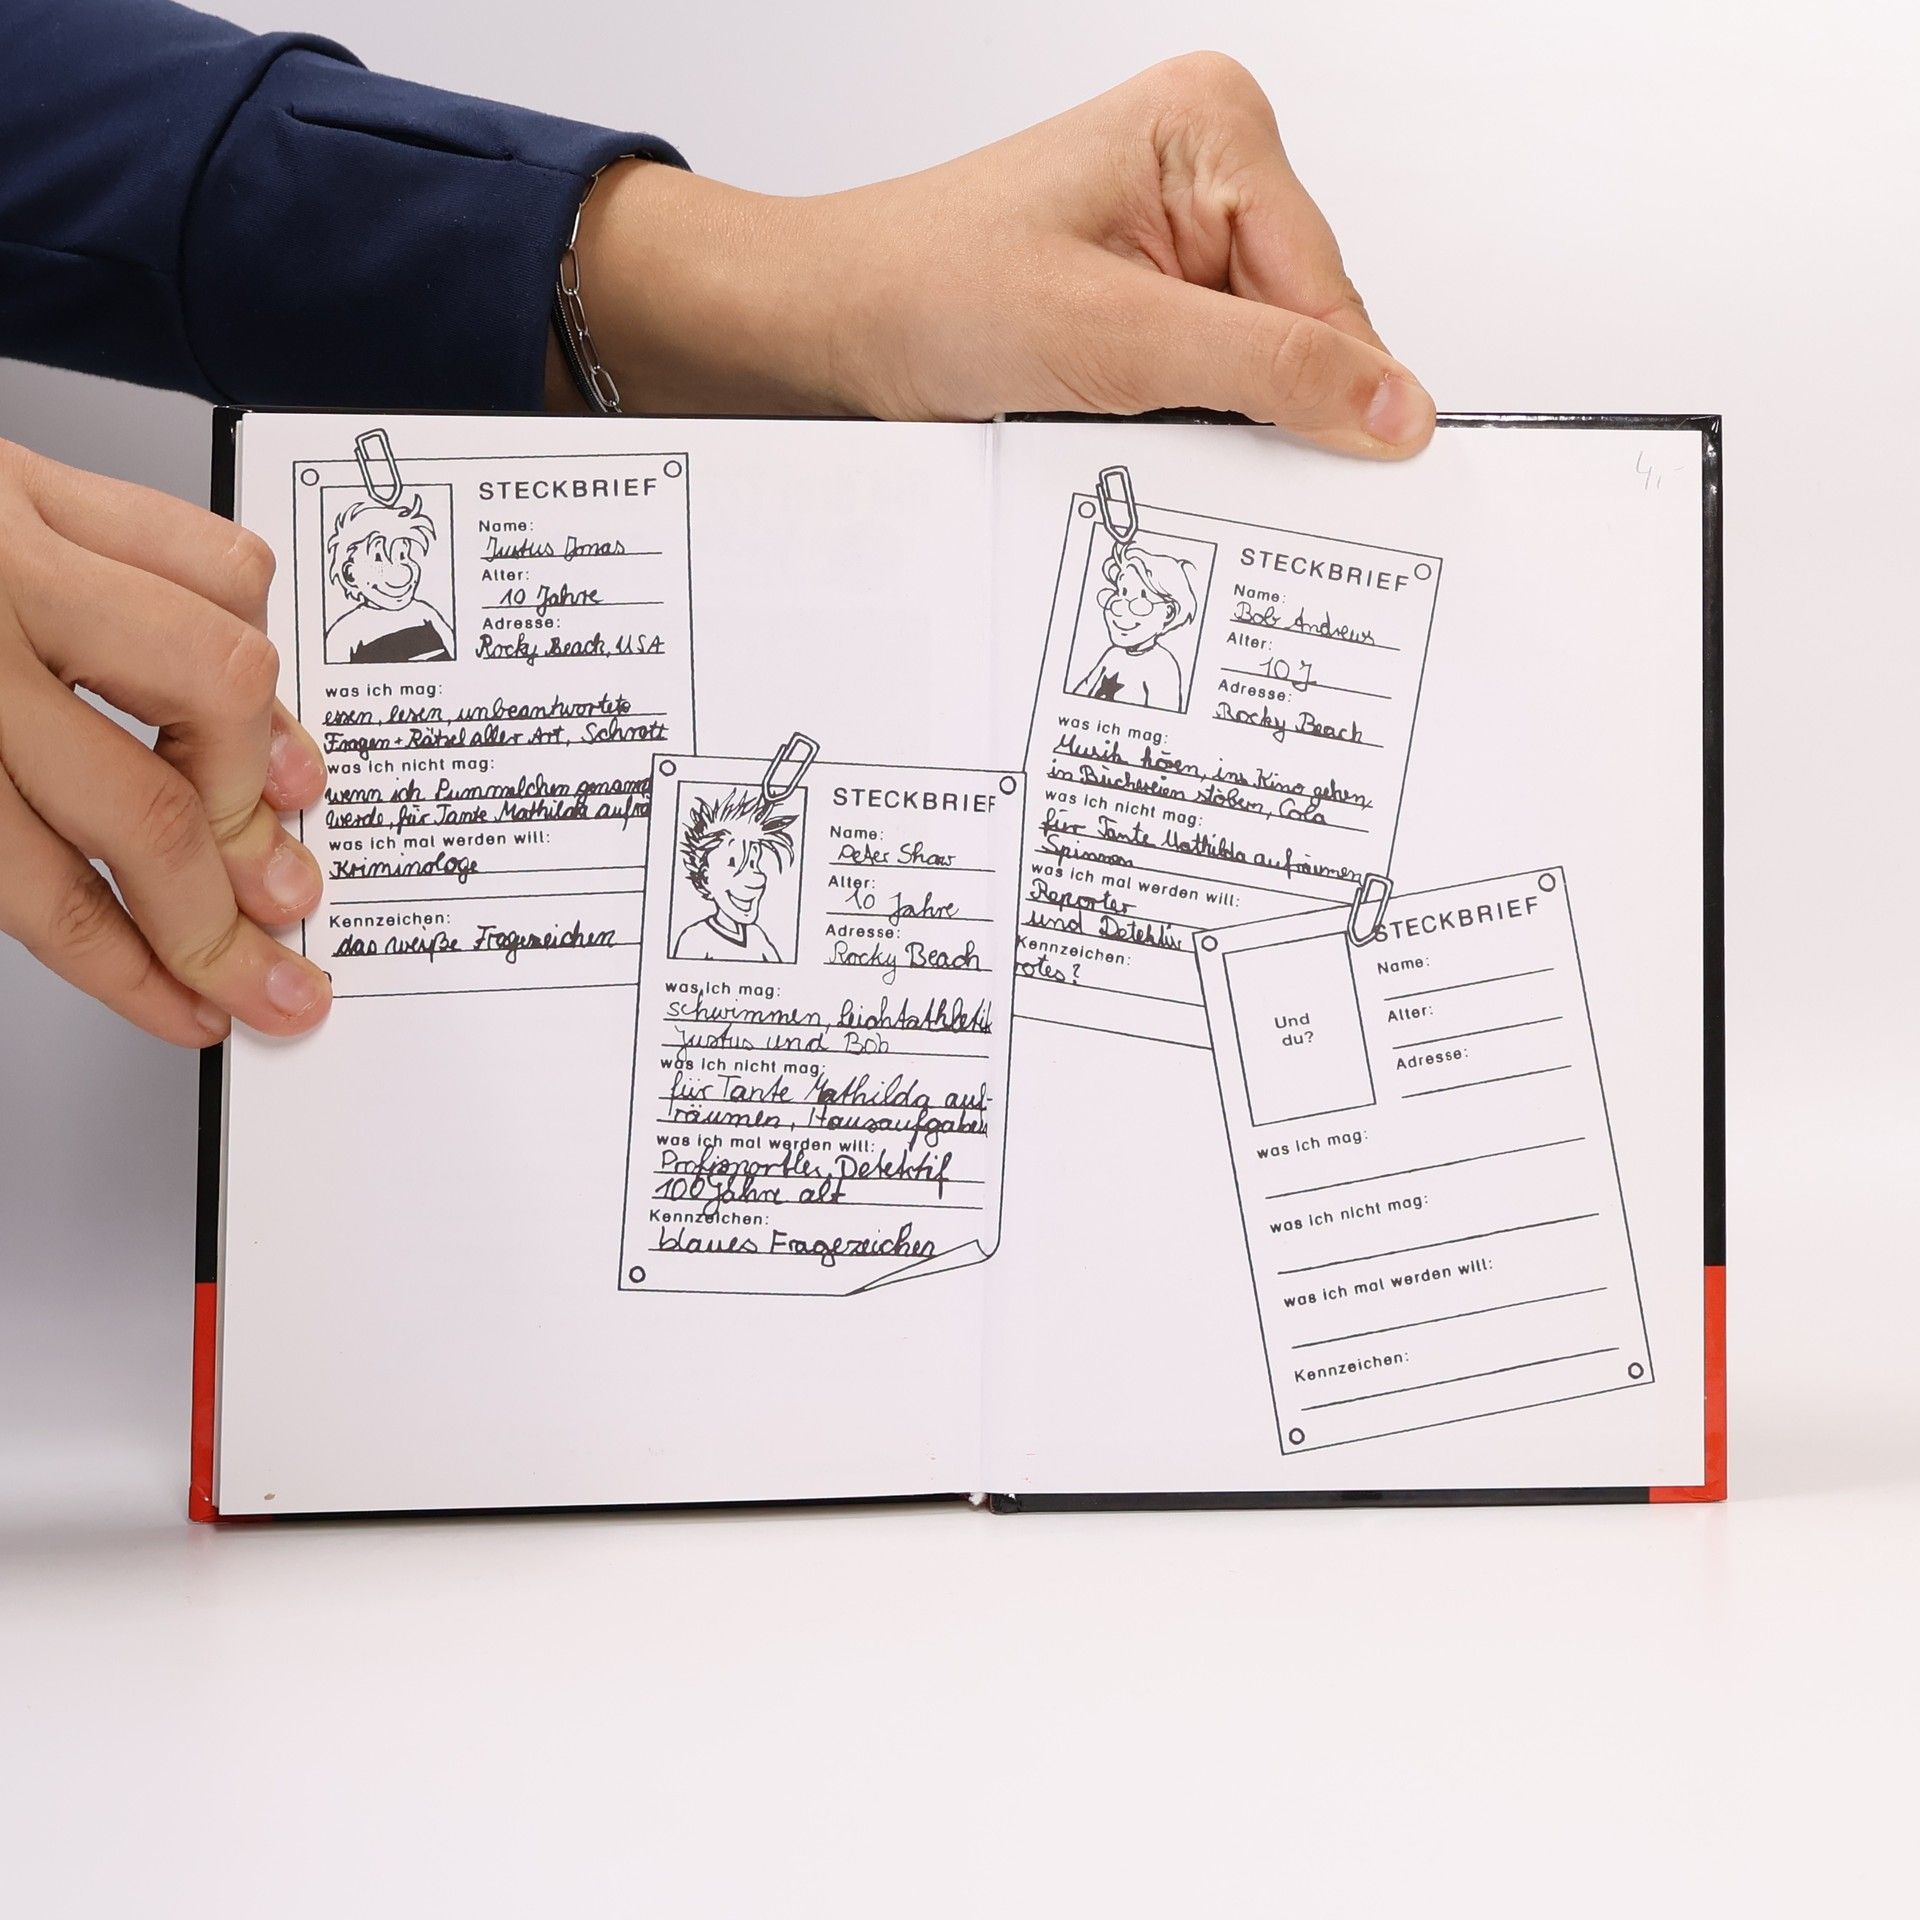 STECKBRIEF
Name:
Justus Jonas
Alter:
10 Jahre
Adresse:
Rocky Beach, USA
was ich mag:
essen, lesen, unbeantwortete
Fragen + Rätsel aller Art, Schrott
was ich nicht mag:
wenn ich Pummelchen genannt
werde, für Tante Mathilda aufrä
was ich mal werden will:
Kriminologe
Kennzeichen:
das weiße Fragezeichen
STECKBRIEF
Name:
Peter Shaw
Alter:
10 Jahre
Adresse:
Rocky Beach
was ich mag:
schwimmen, Leichtathletik
Justus und Bob
was ich nicht mag:
für Tante Mathilda auf-
räumen, Hausaufgaben
was ich mal werden will:
Profisportler, Detektif
100 Jahre alt
Kennzeichen:
blaues Fragezeichen
STECKBRIEF
Name:
Bob Andrews
Alter:
10 J
Adresse:
Rocky Beach
was ich mag:
Musik hören, ins Kino gehen,
in Büchereien stöbern, Cola
was ich nicht mag:
für Tante Mathilda aufräumen
Spinnen
was ich mal werden will:
Reporter
und Detektiv
Kennzeichen:
rotes ?
STECKBRIEF
Und
du?
Name:
Alter:
Adresse:
was ich mag:
was ich nicht mag:
was ich mal werden will:
Kennzeichen:
4,-